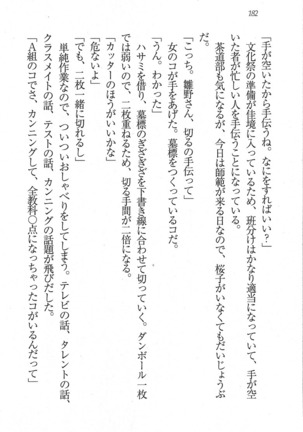 182
「手が空いたから手伝うね。なにをすればいい？」
文化祭の準備が佳境に入っているため、班分けはかなり適当になっていて、手が空
いた者が忙しい人を手伝うことになっている。
茶道部も気になるが、今日は師範が来る日なので、桜子がいなくてもだいじょうぶ
だ。
「こっち。雛野さん、切るの手伝って」
女のコが手をあげた。墓標をつくっているコだ。
「うん。わかった」
ハサミを借り、墓標のぎざぎざを下書き線に合わせて切っていく。ダンボール一枚
では弱いので、二枚重ねるため、切る手間が二倍になる。
「カッターのほうがいいかな」
「危ないよ」
「でも、二枚一緒に切れるし」
単純作業なので、ついついおしゃべりをしてしまう。テレビの話、タレントの話、
クラスメイトの話、テストの話、カンニングの話題が飛びだした。
「A組のコでさ、カンニングして、全教科〇点になっちゃったコがいるんだって」